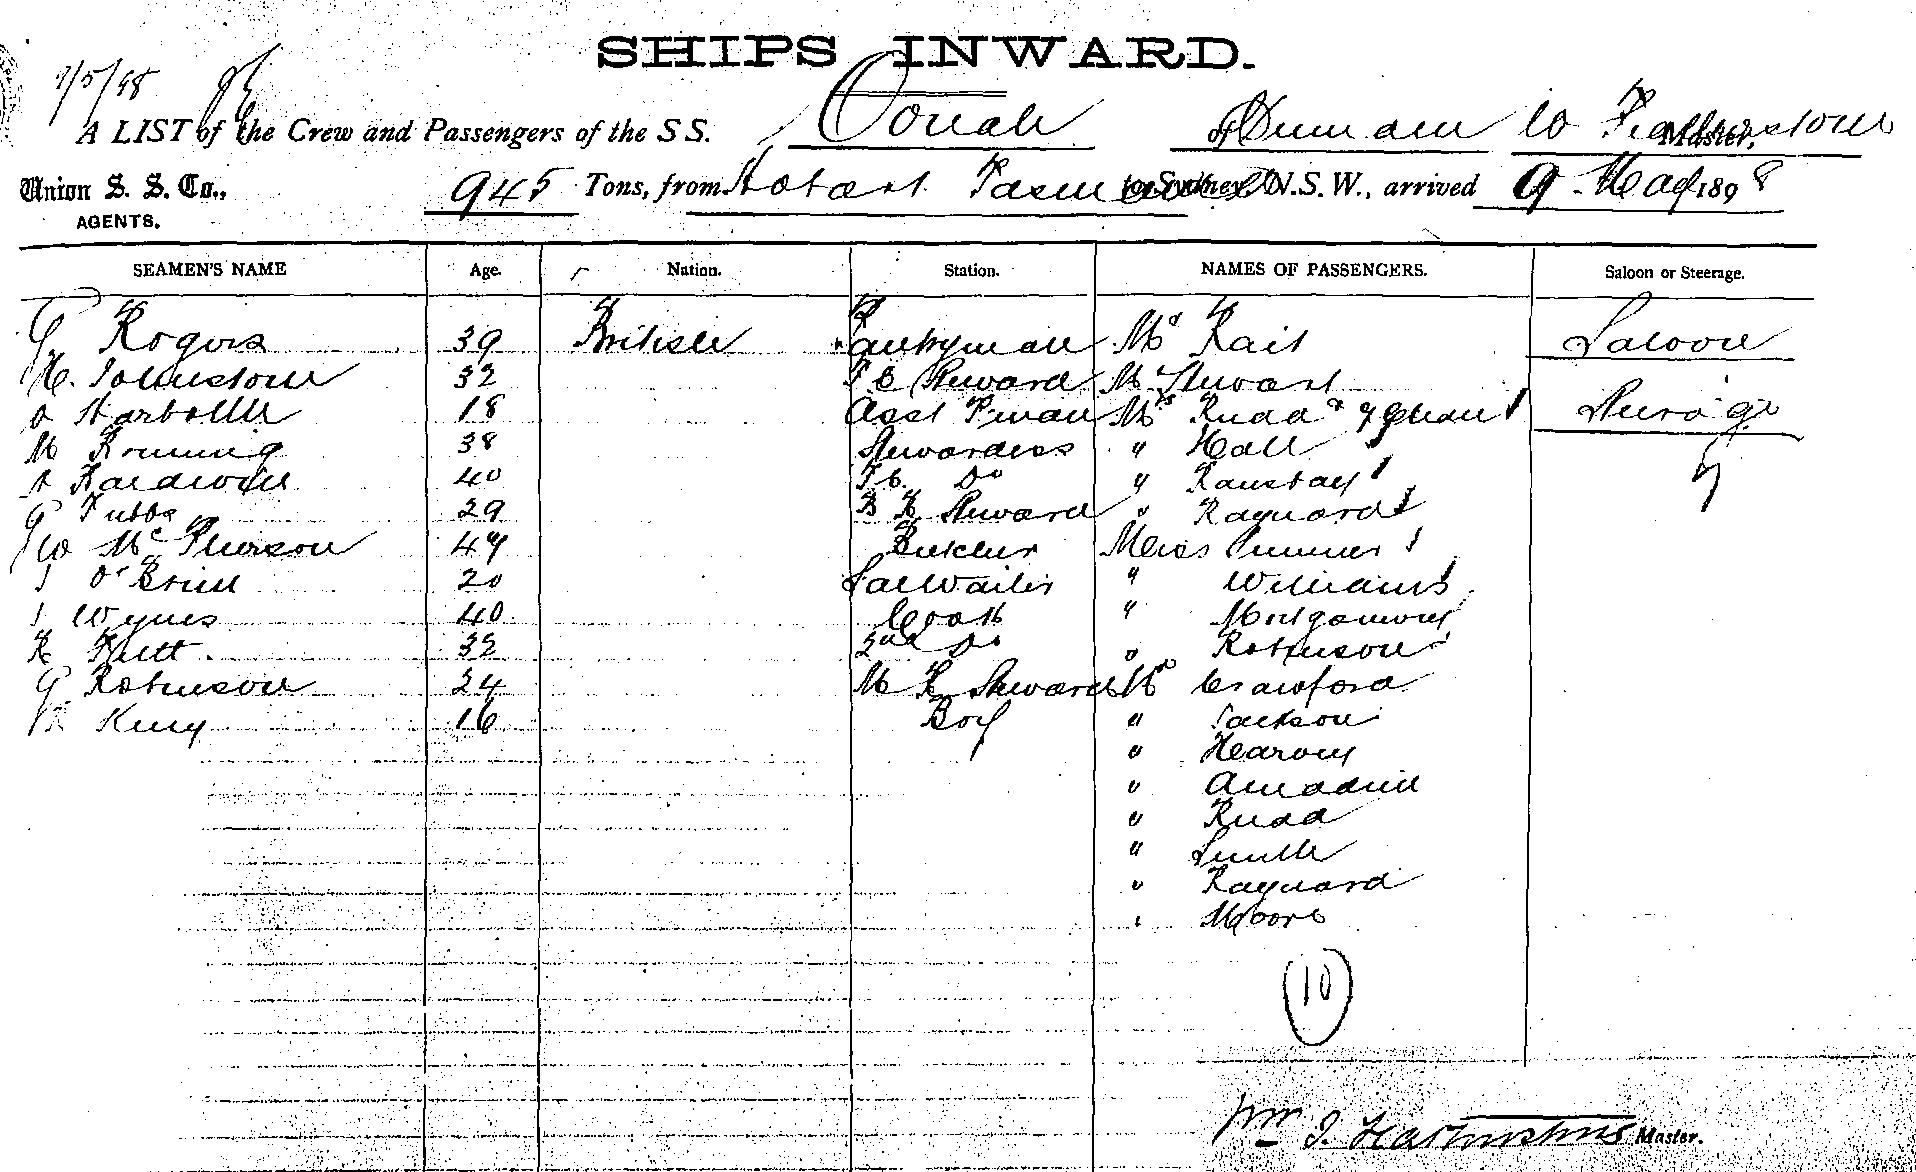 SHIPS INWARD.
9/5/98
A LIST of the Crew and Passengers of the S S. Oonah of Dunedin W Featherstone Master,
Union S. S. Co., 945 Tons, from Hobart Tasmania to Sydney N.S.W., arrived 9 May 1898
AGENTS.
SEAMEN'S NAME Age. Nation. Station. NAMES OF PASSENGERS. Saloon or Steerage.
G Rogers 39 British Pantryman Mrs Rait Saloon
H. Johnstone 32 F C Steward Mr Stewart
A Harbottle 18 Asst Pman Mrs Rudd & Steerage
M 38 Stewardess " Hall
A Bardwell 40 F C. Do "
G Tubbs 29 B R Steward " Raynard
W McPherson 47 Butcher Miss
J O'Brien 20 Sal Waiter " Williams
J Wynes 40 Cook " Montgomery
32 2nd Do " Robinson
G Robinson 24 M R Steward Mr Crawford
King 16 Boy " Jackson
" Hearvey
"
" Rudd
" Smith
" Raynard
" Moore
10
Wm J. Featherstone Master.